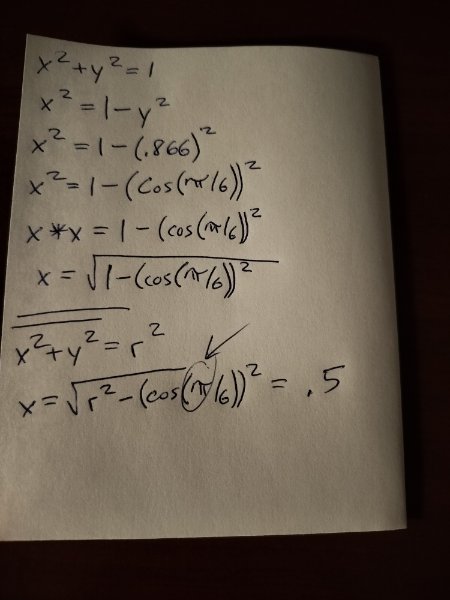 x²+y²=1
x²=1-y²
x²=1-(.866)²
x²=1-(Cos(π/6))²
x*x=1-(cos(π/6))²
x=√1-(cos(π/6))²
x²+y²=r²
x=√r²-(cos(π/6))²=.5